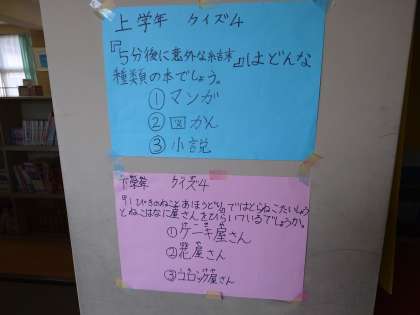 上学年 クイズ4
『5分後に意外な結末』はどんな
種類の本でしょう。
①マンガ
②図かん
③小説
下学年 クイズ4
91ひきのねことあほうどり』ではとらねこたいしょう
とねこはなに屋さんをひらいているでしょうか。
①ケーキ屋さん
②花屋さん
③コロッケ屋さん